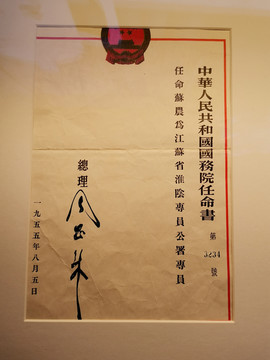 中華人民共和國國務院任命書
第3234號
任命蘇農爲江蘇省淮陰專員公署專員
總理
周恩來
一九五五年八月五日